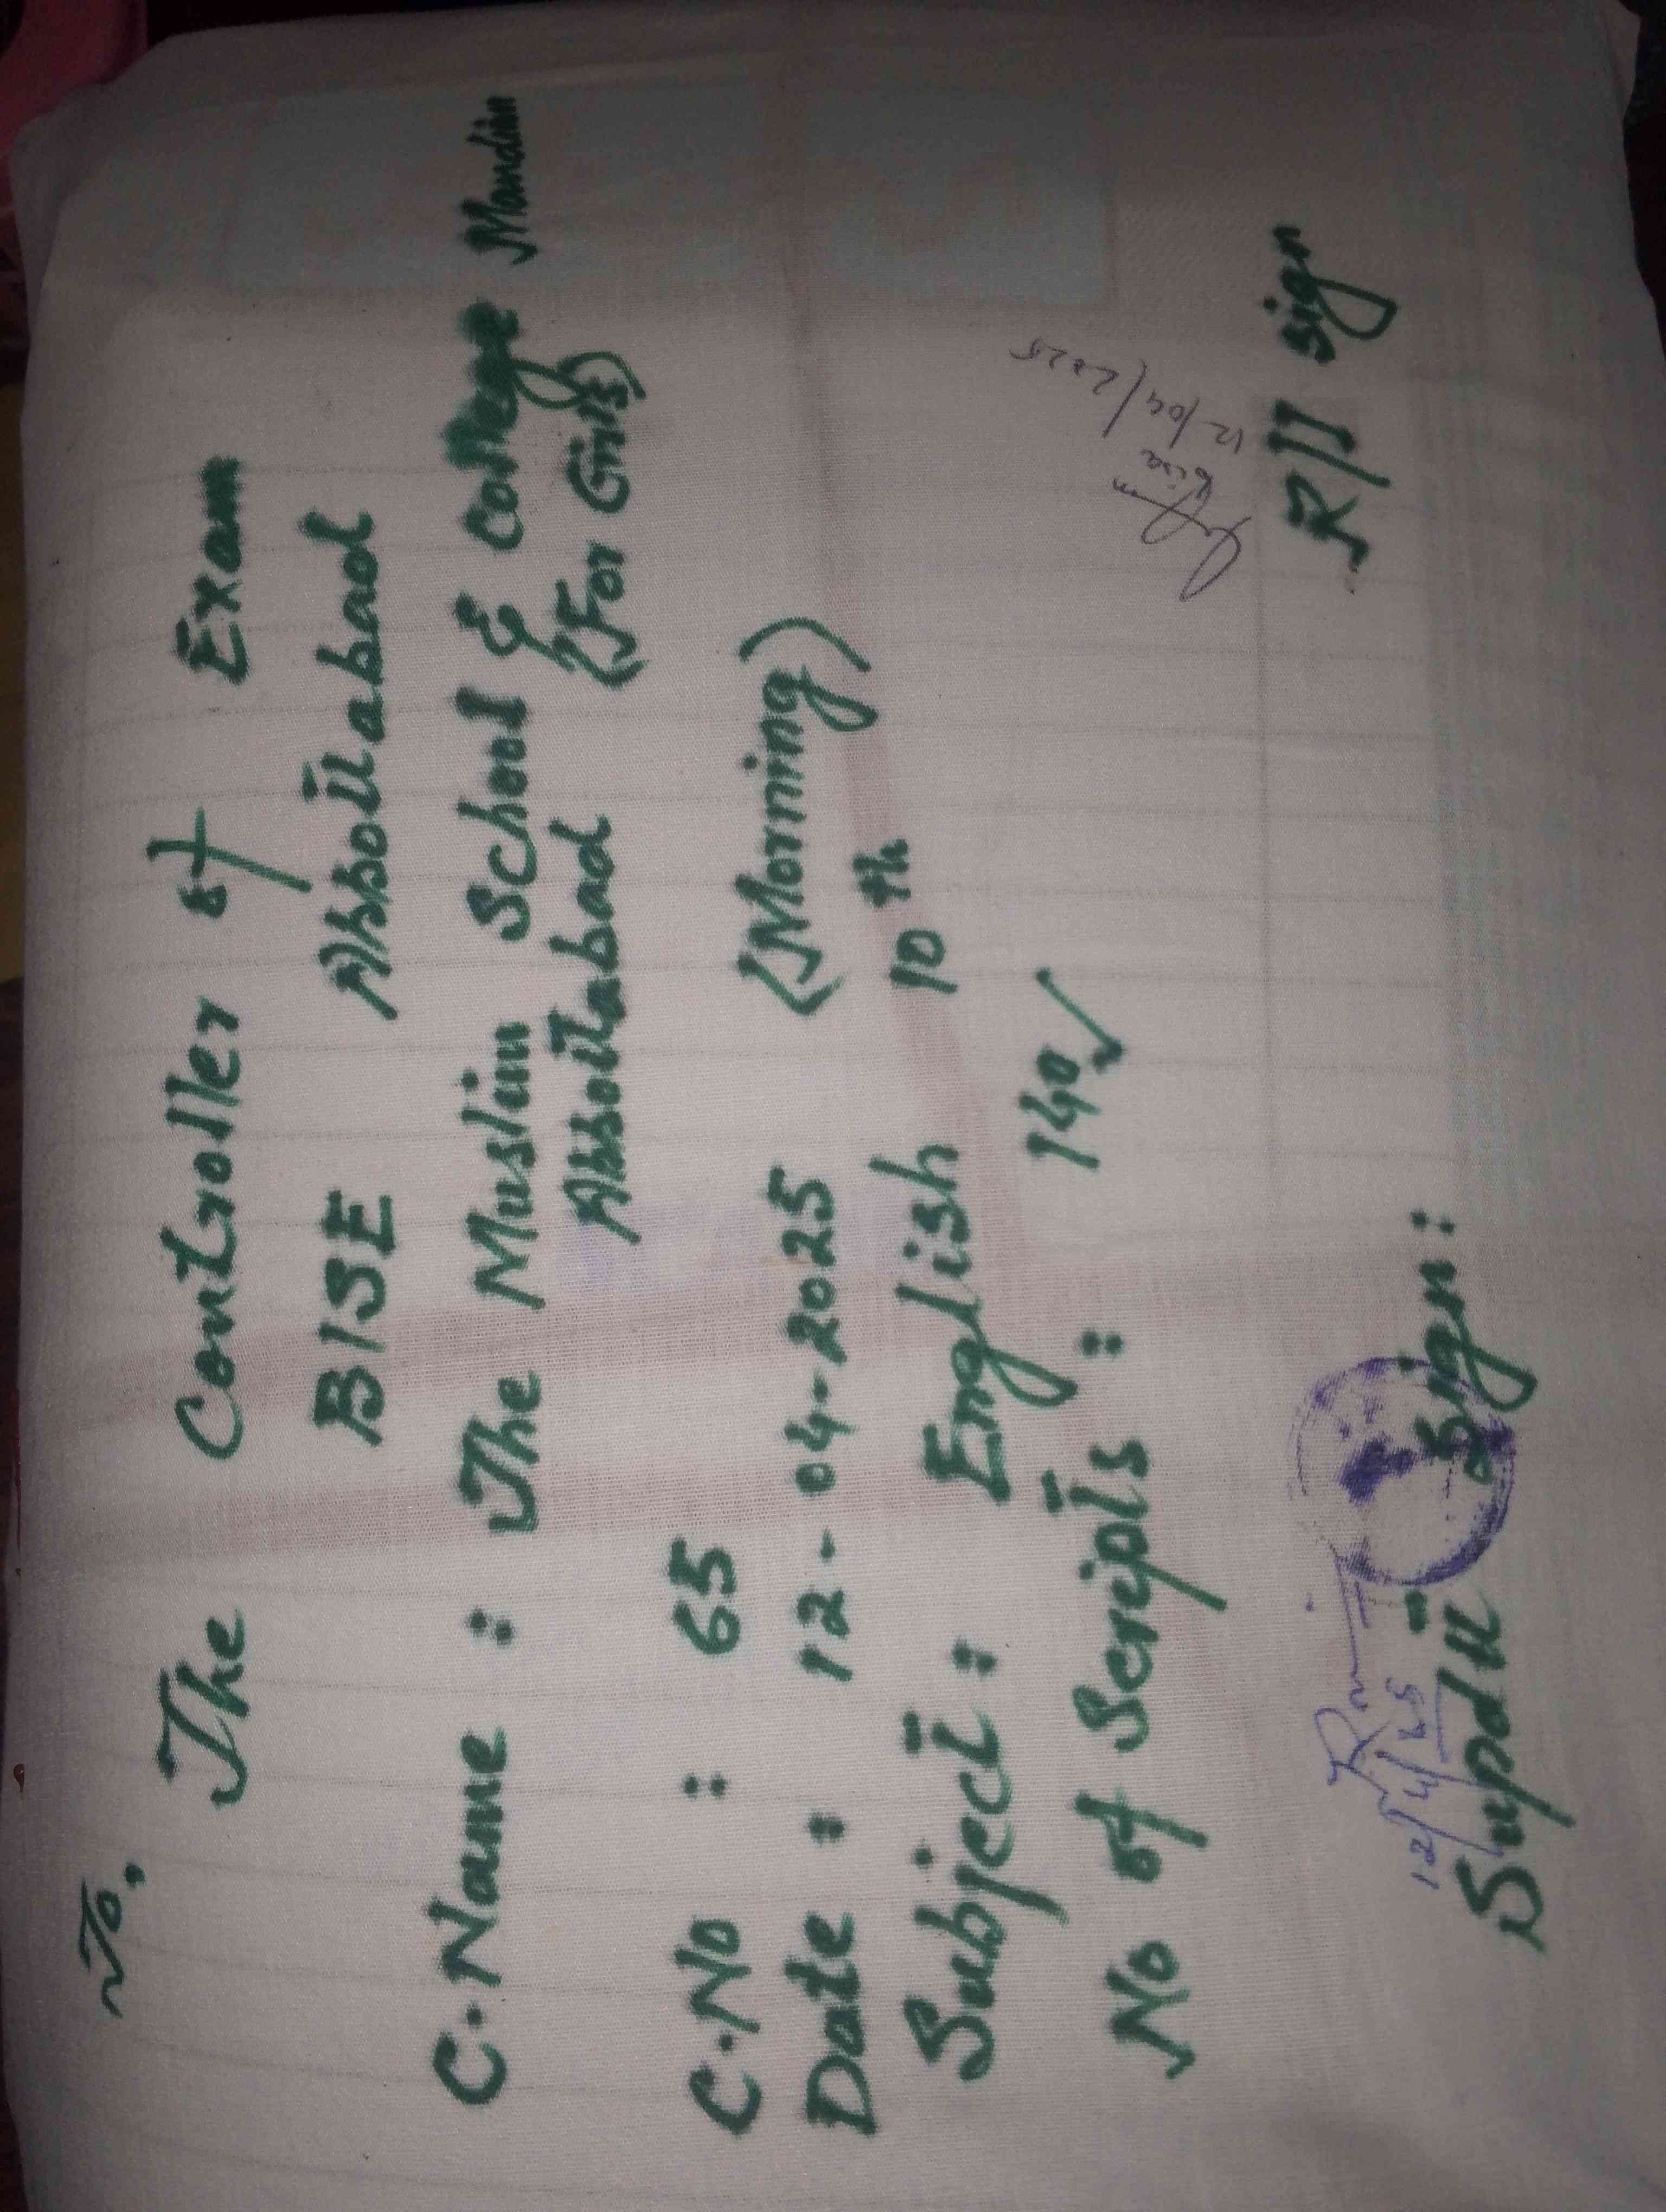 To,
The Controller of Exam
BISE Abbottabad
C.Name : The Muslim School & College Mandian
Abbottabad (For Girls)
C.No : 65
Date : 12-04-2025 (Morning)
Subject : English 10th
No of Scripts : 140 ✓
12/04/2025
R/I sign
12/4/25
Supdtt Sign: